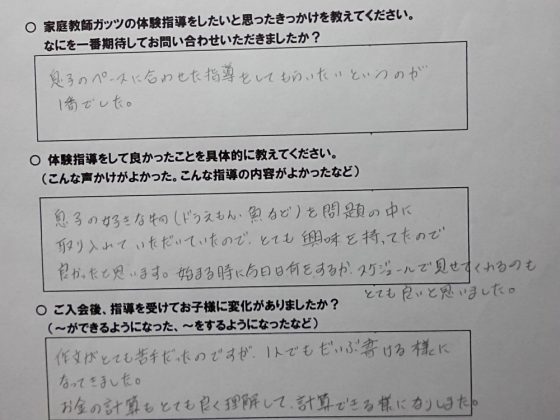 ○ 家庭教師ガッツの体験指導をしたいと思ったきっかけを教えてください。
なにを一番期待してお問い合わせいただきましたか？
息子のペースに合わせた指導をしてもらいたいというのが
1番でした。
○ 体験指導をして良かったことを具体的に教えてください。
（こんな声かけがよかった。こんな指導の内容がよかったなど）
息子の好きな物(ドラえもん、魚など)を問題の中に
取り入れていただいていたので、とても興味を持ってたので
良かったと思います。始まる時に今日は何をするか、スケジュールで見せてくれるのも
とても良いと思いました。
○ ご入会後、指導を受けてお子様に変化がありましたか？
（～ができるようになった、～をするようになったなど）
作文がとても苦手だったのですが、1人でもだいぶ書ける様に
なってきました。
お金の計算もとても良く理解して、計算できる様になりました。